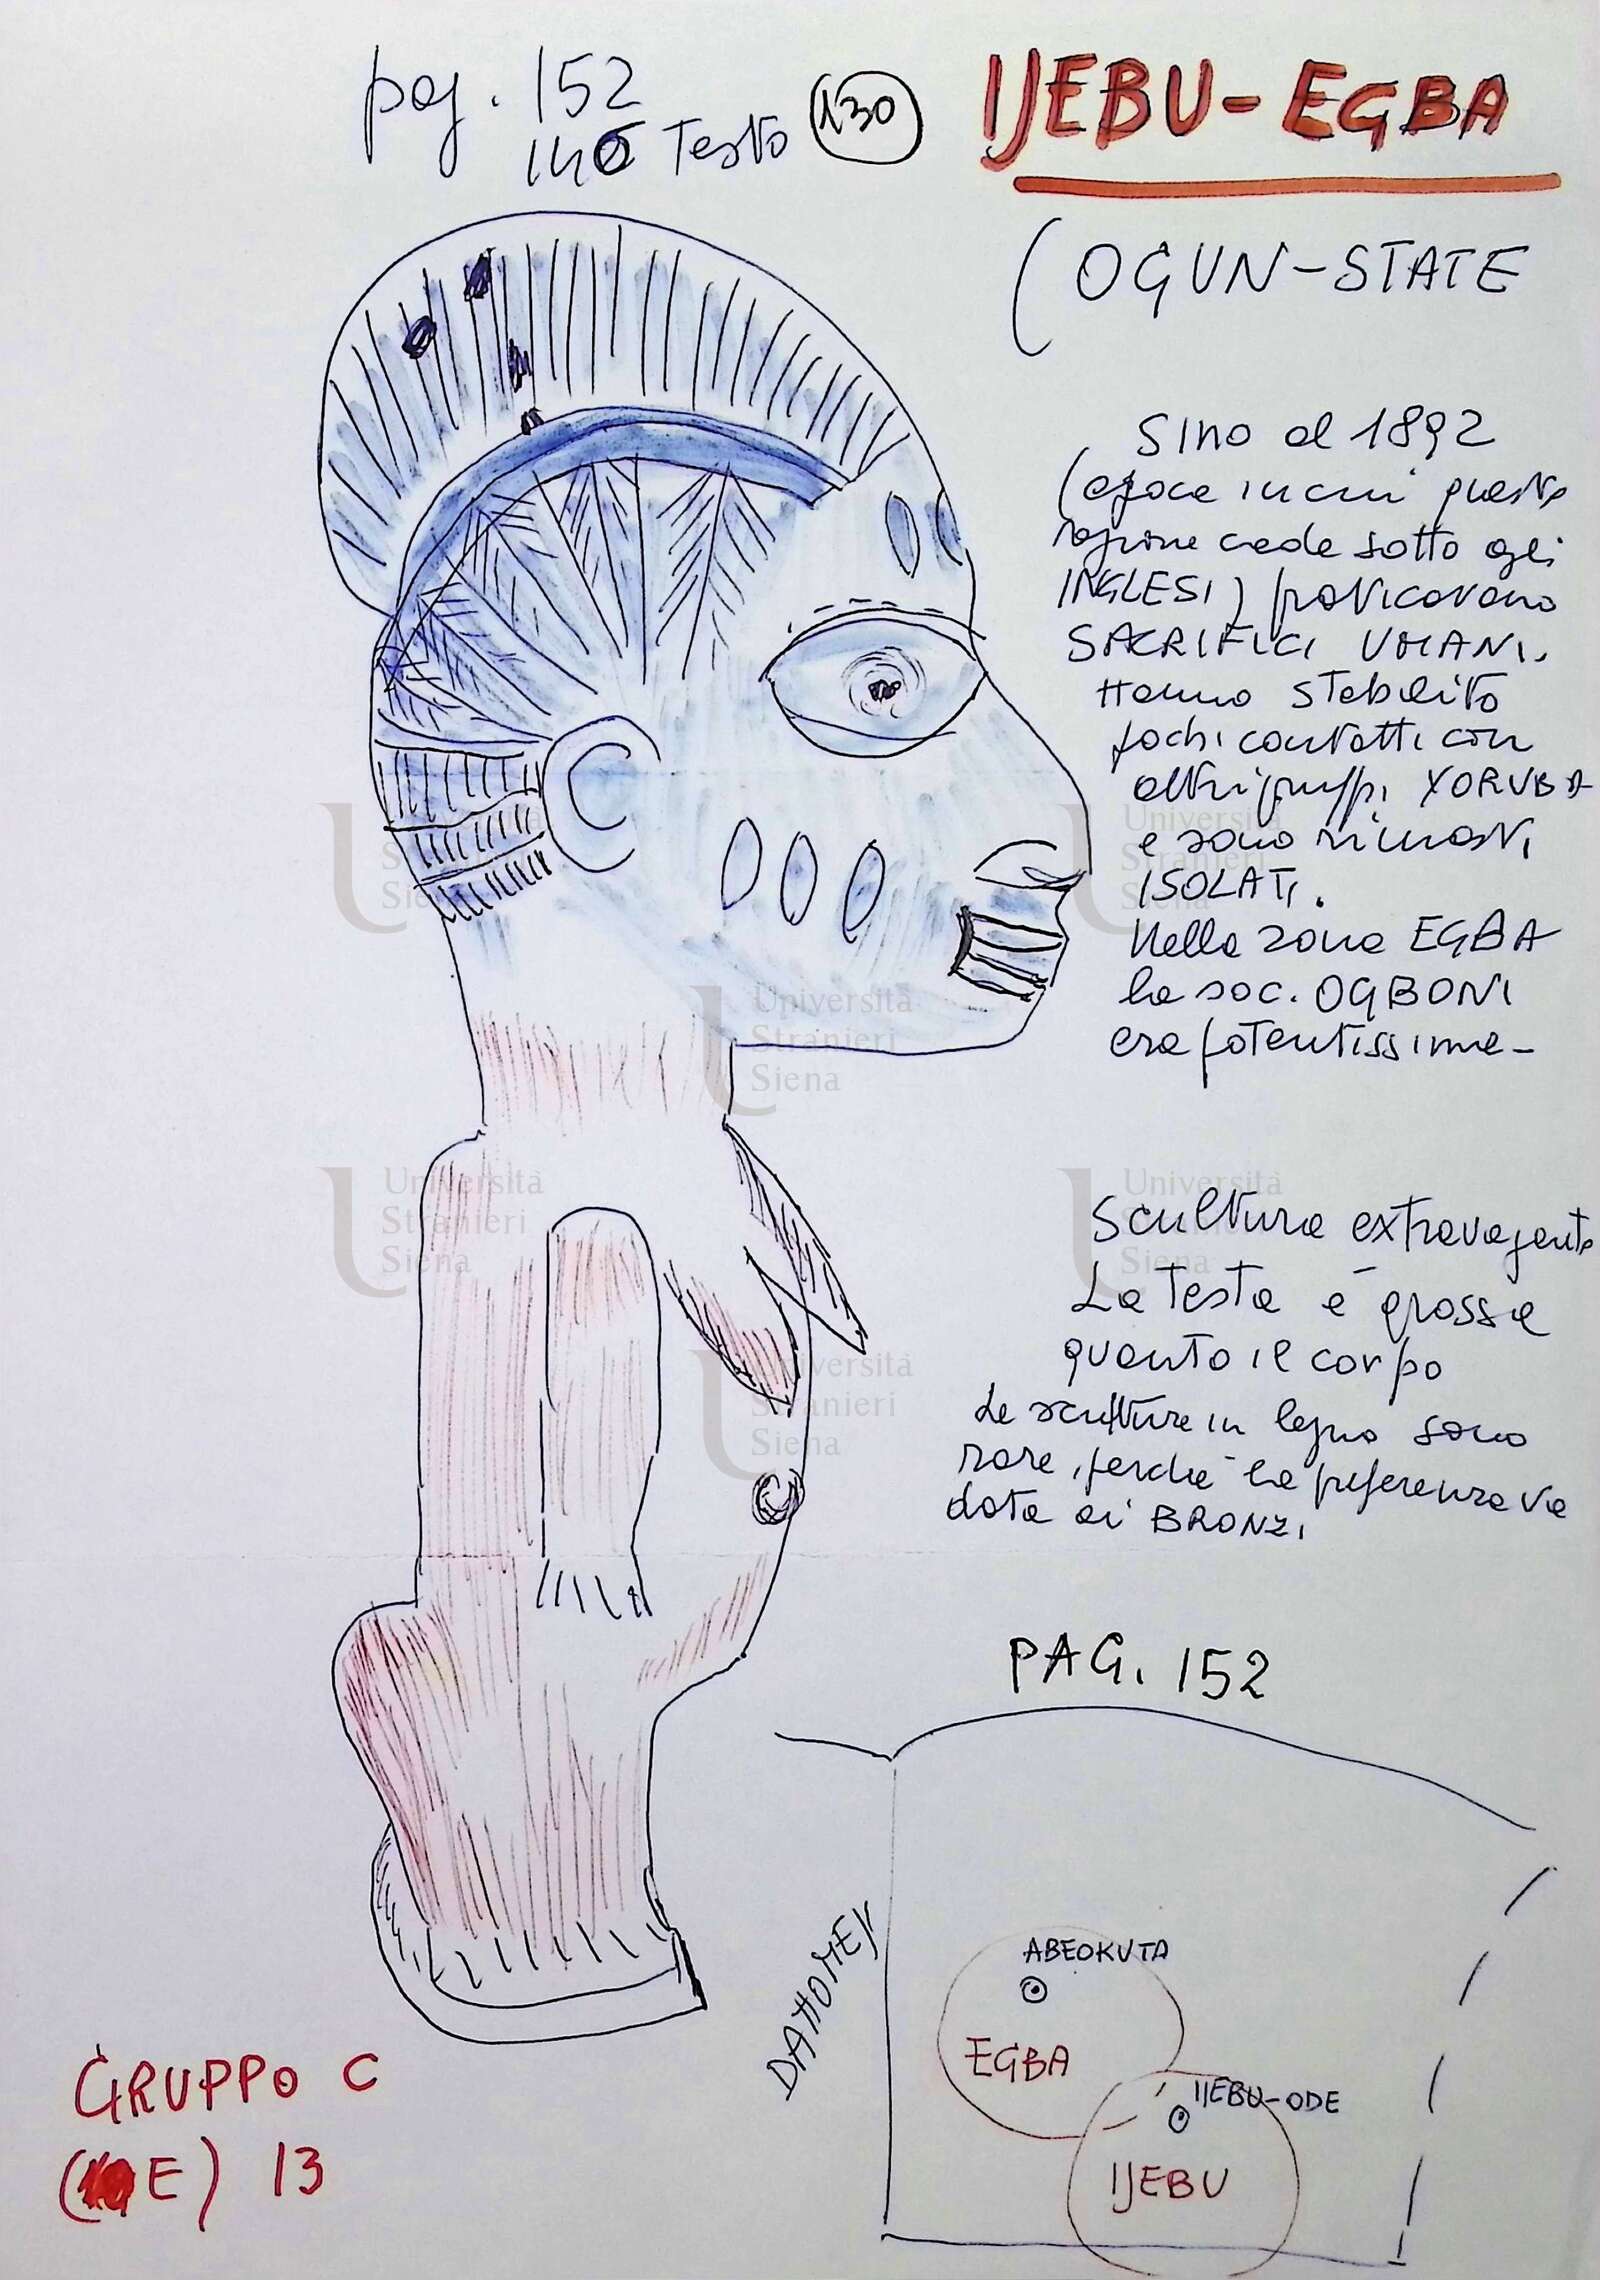 pag. 152
Testo 130
IJEBU-EGBA
(OGUN-STATE
Sino al 1892
(epoca in cui questa
regione cade sotto gli
INGLESI) praticavano
SACRIFICI UMANI.
Hanno stabilito
pochi contatti con
altri gruppi YORUBA
e sono rimasti
ISOLATI.
Nella zona EGBA
la soc. OGBONI
era potentissima-
Scultura extravagante
La testa è grossa
quanto il corpo
Le sculture in legno sono
rare, perché la preferenza va
data ai BRONZI
PAG. 152
DAHOMEY
ABEOKUTA
EGBA
IJEBU-ODE
IJEBU
GRUPPO C
(E) 13
Università
Stranieri
Siena
Università
Stranieri
Siena
Università
Stranieri
Siena
Università
Stranieri
Siena
Università
Stranieri
Siena
Università
Stranieri
Siena